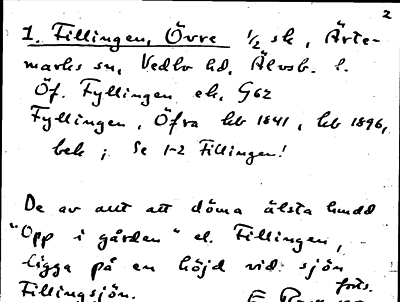 2
1. Fillingen, Övre 1/2 sk, Ärte-
marks sn, Vedbo hd, Älvsb. l.
Öf. Fyllingen ek, G62
Fyllingen, Öfra kb 1841, kb 1896,
bek; Se 1-2 Fillingen!
De av allt att döma älsta hmdd
"Opp i gården" el. Fillingen,
ligga på en höjd vid sjön
Fillingsjön. forts.